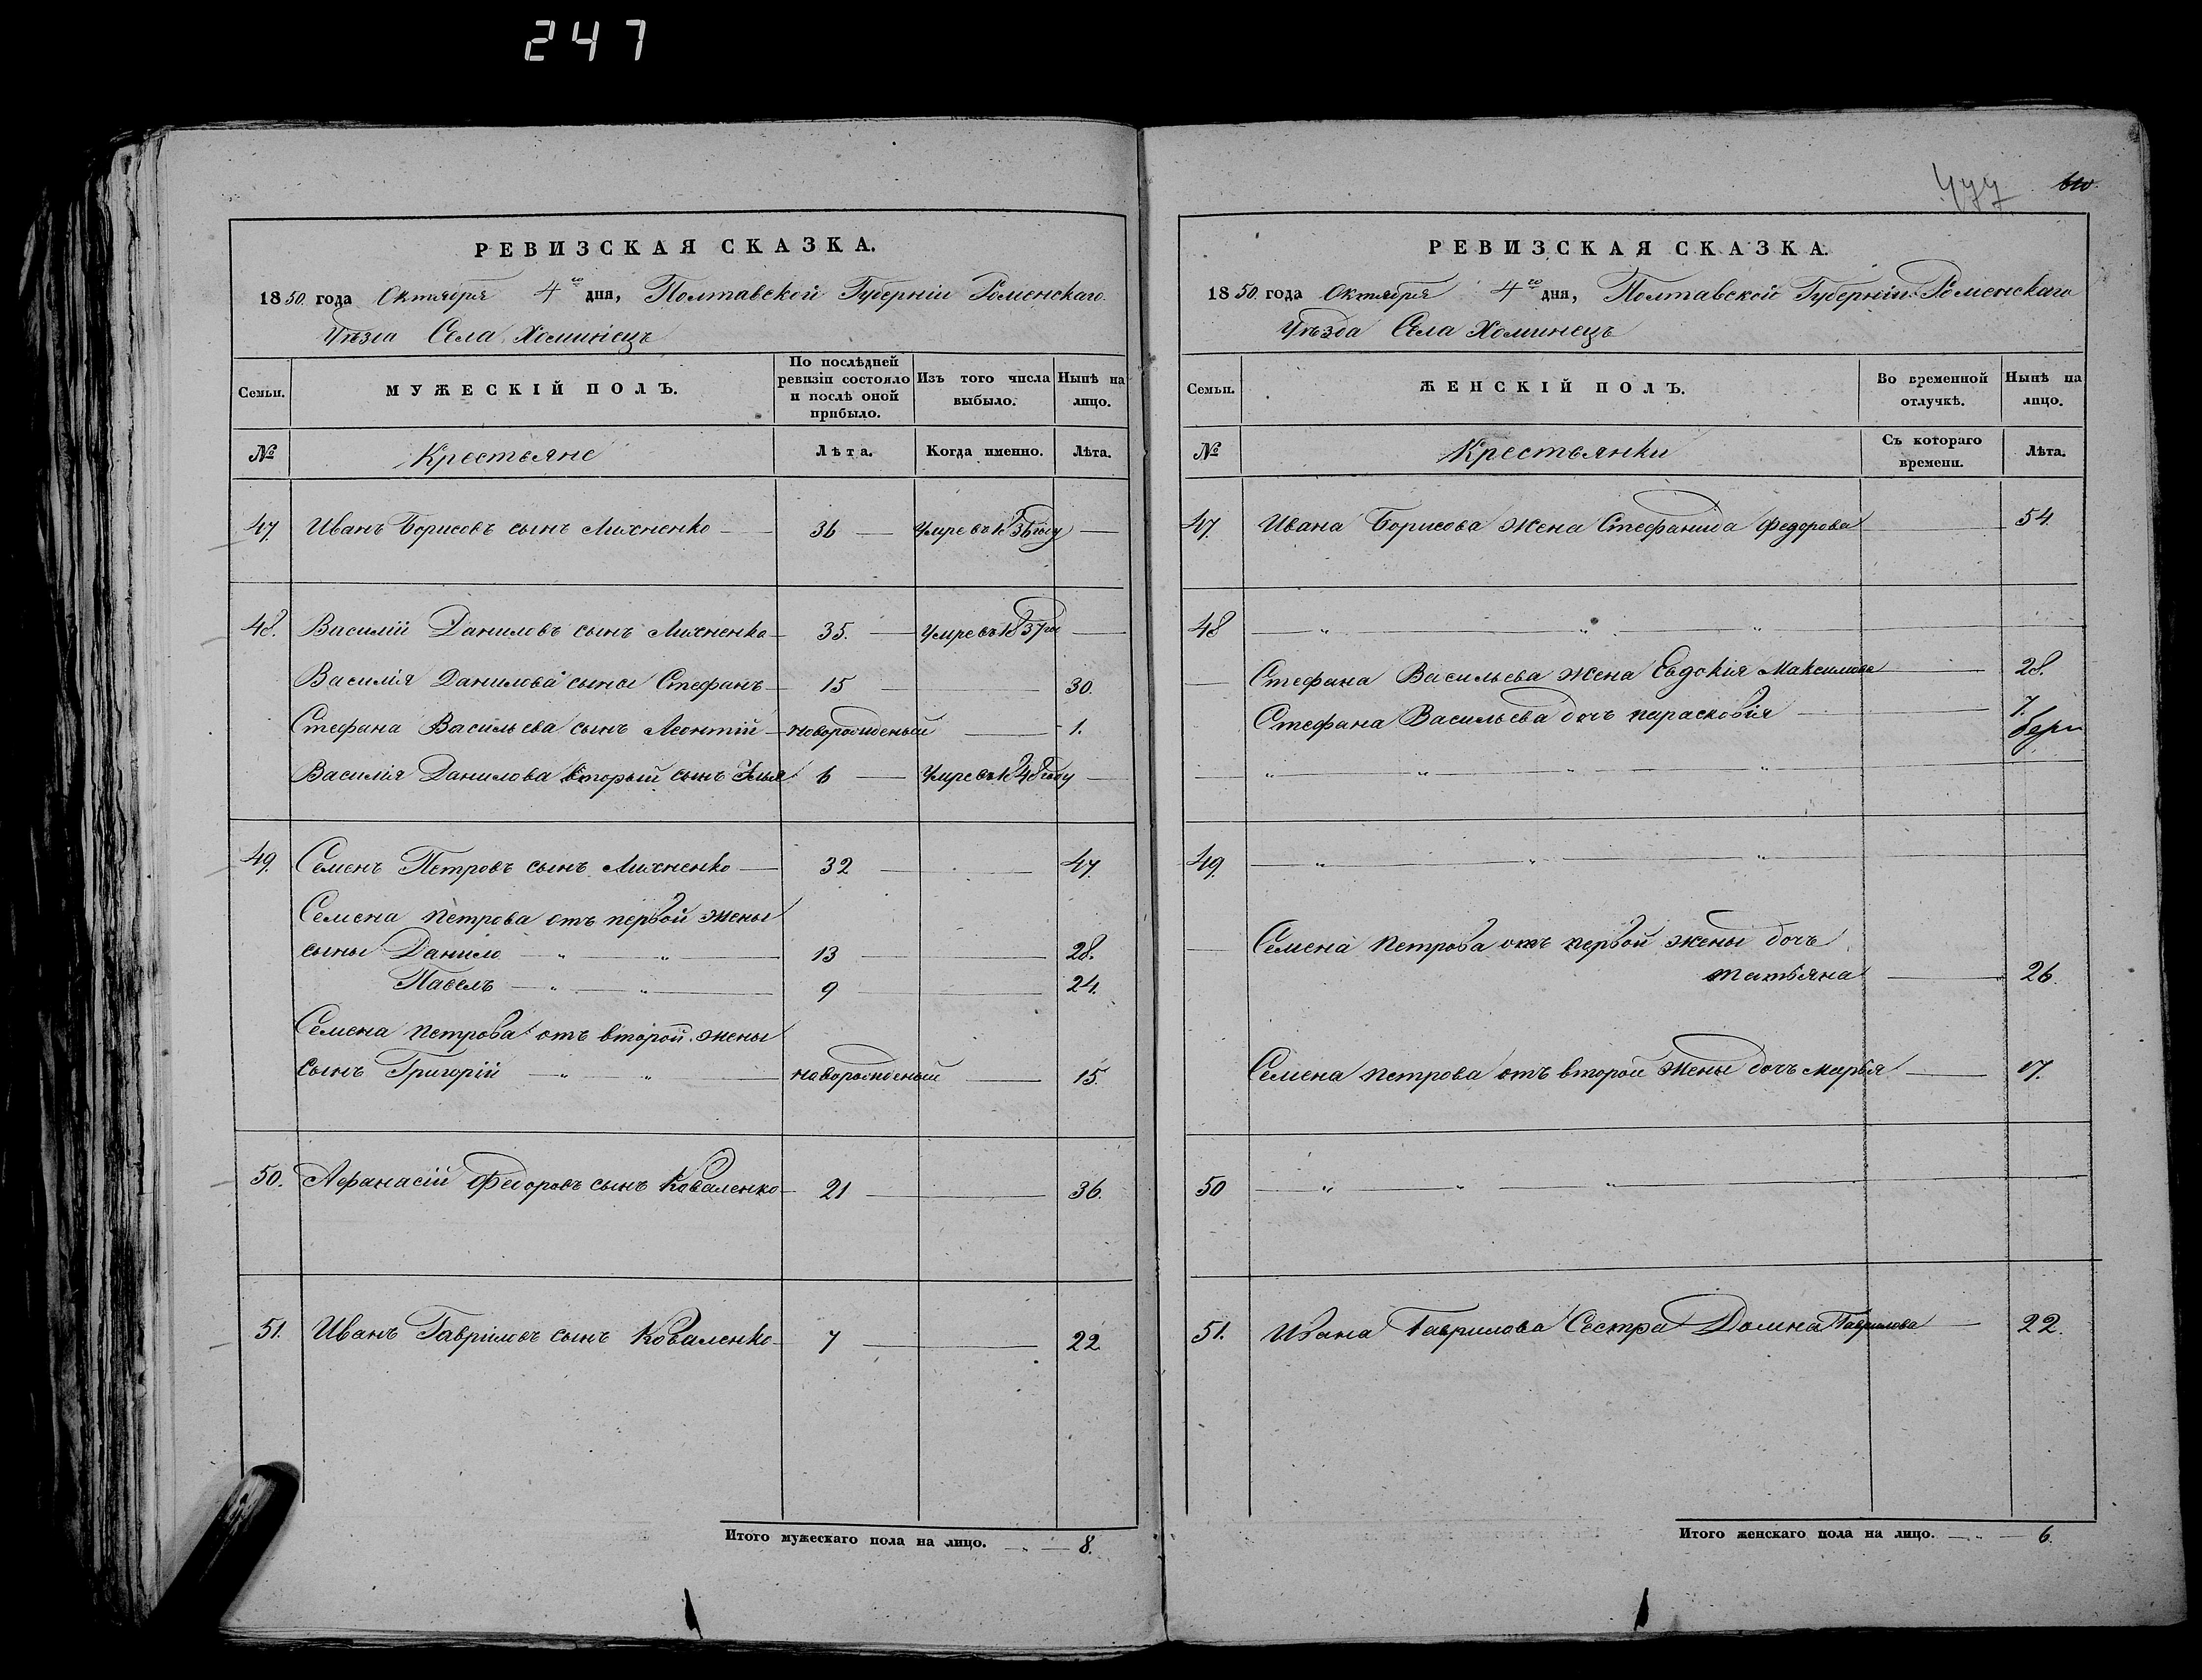 247
РЕВИЗСКАЯ СКАЗКА.
1850. года Октября 4го дня, Полтавской Губерніи Роменскаго
Уѣзда Села Хоминецъ
Семьи.
МУЖЕСКІЙ ПОЛЪ.
По послѣдней ревизіи состояло и послѣ оной прибыло.
Изъ того числа выбыло.
Нынѣ на лицо.
№ Крестьяне Лѣта. Когда именно. Лѣта.
47 Иванъ Борисовъ сынъ Михненко 36 Умре въ 1836 году
48. Василій Даниловъ сынъ Михненко 35. Умре въ 1837 го
Василія Данилова сынъ Стефанъ 15 30.
Стефана Васильева сынъ Леонтій новорожденый 1.
Василія Данилова вторый сынъ Илья 6 Умре въ 1848 году
49. Семенъ Петровъ сынъ Михненко 32 47.
Семена Петрова отъ первой жены
сыны Данило 13 28.
Павелъ 9 24.
Семена Петрова отъ второй жены
сынъ Григорій новорожденый 15.
50. Афанасій Федоровъ сынъ Коваленко 21 36.
51. Иванъ Гавриловъ сынъ Коваленко 7 22
Итого мужескаго пола на лицо. 8.
477
РЕВИЗСКАЯ СКАЗКА.
1850. года Октября 4го дня, Полтавской Губерніи Роменскаго
Уѣзда Села Хоминецъ
Семьи.
ЖЕНСКІЙ ПОЛЪ.
Во временной отлучкѣ.
Нынѣ на лицо.
№ Крестьянки Съ котораго времени. Лѣта.
47. Ивана Борисова жена Стефанида Федорова 54.
48
Стефана Васильева жена Евдокія Максимова 28.
Стефана Васильева дочь Парасковія 7.
49.
Семена Петрова отъ первой жены дочъ
Татьяна 26.
Семена Петрова отъ второй жены дочъ Марья 17.
50
51. Ивана Гаврилова Сестра Домна Гаврилова 22.
Итого женскаго пола на лицо. 6.